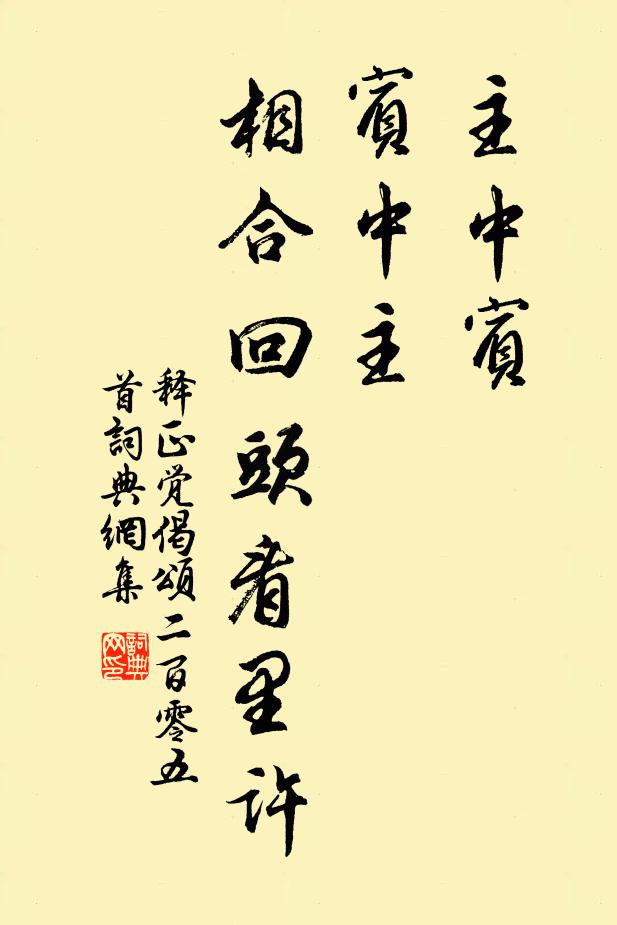 主中賓
賓中主
相合回頭看里許
释正觉偈頌二百零五
首詞典網集
詞典
网印